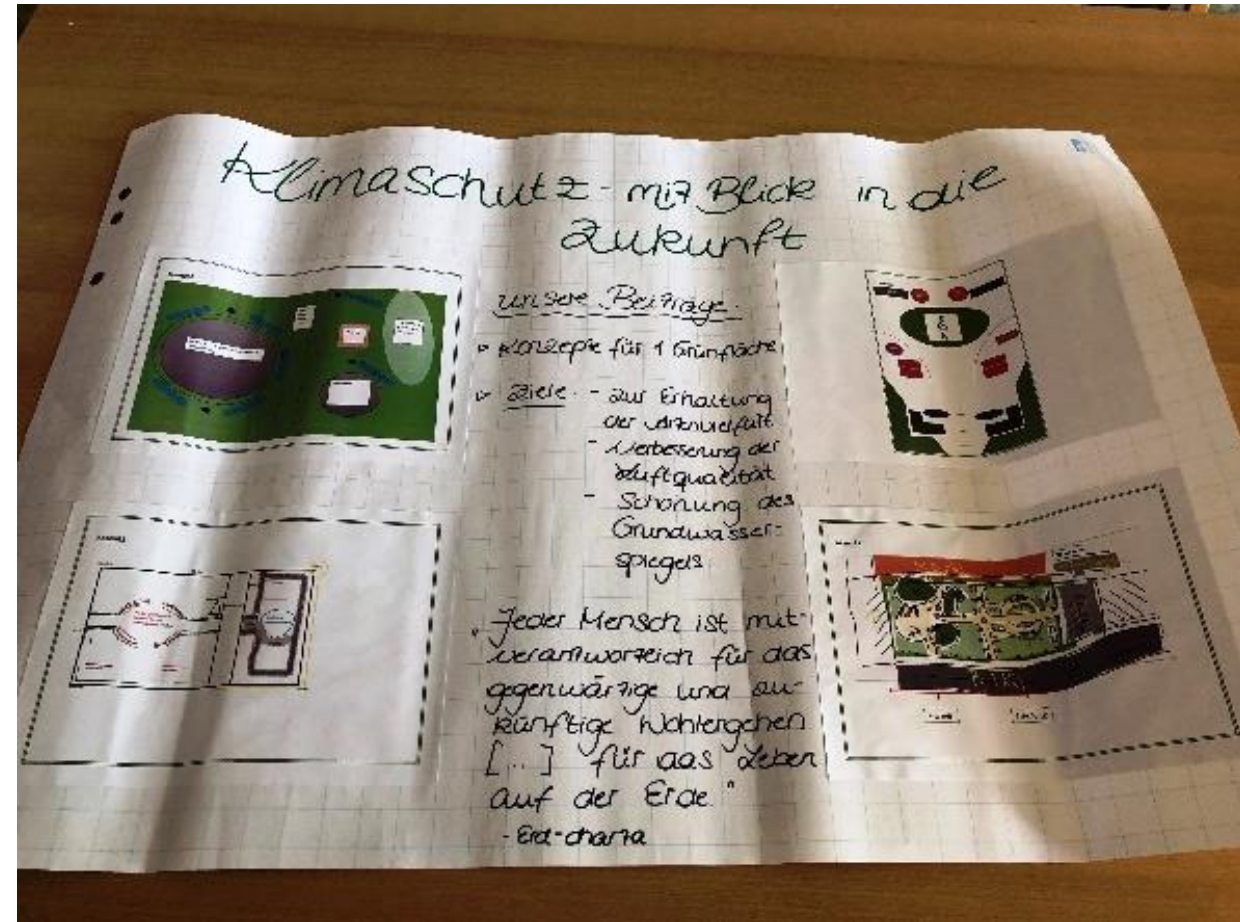 Klimaschutz - mit Blick in die
Zukunft
unsere Beiträge:
Konzepte für 1 Grünfläche
Ziele: - zur Erhaltung
der Artenvielfalt
- Verbesserung der
Luftqualität
- Schonung des
Grundwasser-
spiegels
„Jeder Mensch ist mit-
verantwortlich für das
gegenwärtige und zu-
künftige Wohlergehen
[...] für das Leben
auf der Erde."
- Erd-charta